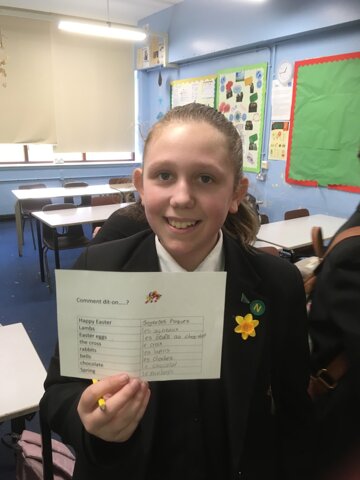 Comment dit-on.....?
Happy Easter Joyeuses Pâques
Lambs les agneaux
Easter eggs les œufs au chocolat
the cross la croix
rabbits les lapins
bells les cloches
chocolate le chocolat
Spring le printemps
N